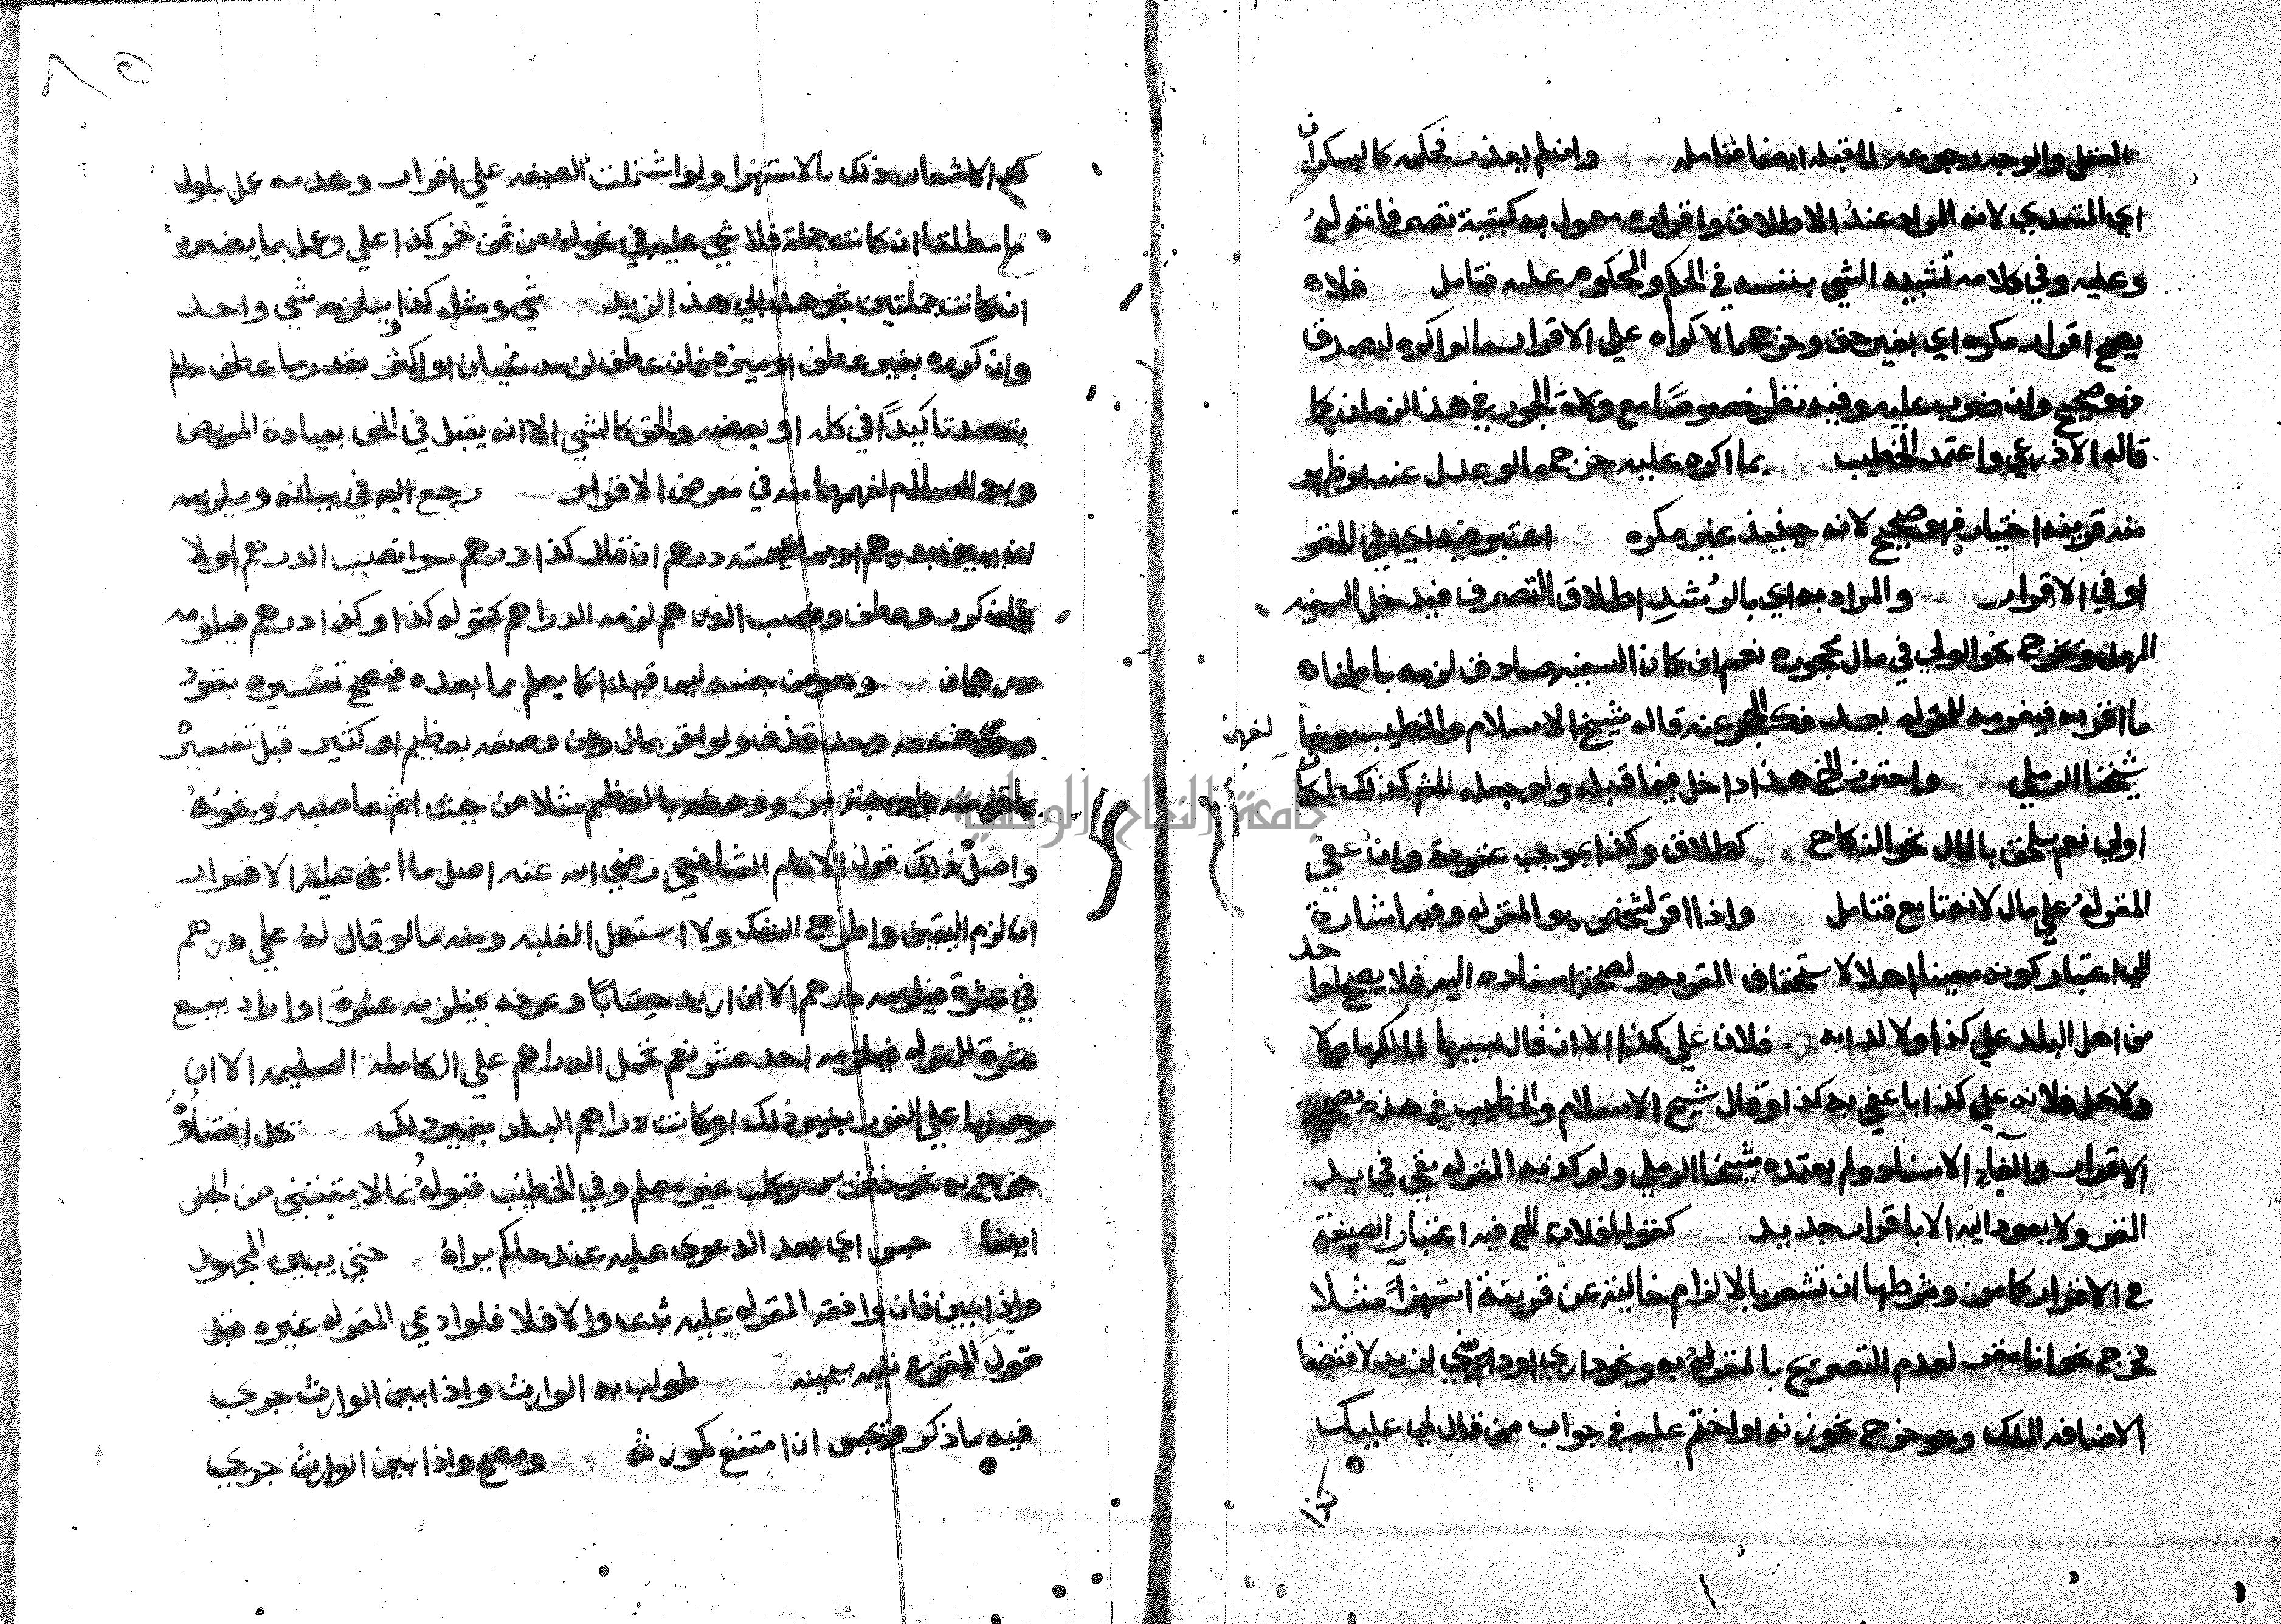 العقل والوجه رجوعه لما قبله ايضا فتامله وان لم يعذر فحكمه كالسكران
اي المتعدي لانه المراد عند الاطلاق واقراره معمول به كبقية تصرفاته له
وعليه وفي كلامه تشبيه الشي بنفسه في الحكم والمحكوم عليه فتامل فلا
يصح اقرار مكره اي بغير حق وخرج بالاكراه علي الاقرار ما لو اكره ليصدق
فهو صحيح وان ضرب عليه وفيه نظر خصوصا مع ولاة الجور في هذا الزمان كما
قاله الاذرعي واعتمد الخطيب بما اكره عليه خرج ما لو عدل عنه او ظهر
منه قرينة اختيار فهو صحيح لانه حينيذ غير مكره اعتبر فيه اي في المقر
او في الاقرار والمراد به اي بالرشد اطلاق التصرف فيدخل السفيه
المهمل ويخرج نحو الولي في مال محجوره نعم ان كان السفيه صادق لزمه باطنا
ما اقر به فيغرمه للمقر له بعد فك الحجر عنه قاله شيخ الاسلام والخطيب
شيخنا الرملي واحترز الخ هذا داخل فيما قبله ولو جعله للشر كذلك لكان
اولي نعم يلحق بالمال نحو النكاح كطلاق وكذا بموجب عقوبة وان عفي
المقر له علي مال لانه تابع فتامل واذا اقر لشخص هو المقر له وفيه اشارة
الي اعتبار كونه معينا اهلا لاستحقاق المقر به ولصحة اسناده اليه فلا يصح لواحد
من اهل البلد علي كذا ولا لدابة فلان علي كذا الا ان قال بسببها لمالكها ولا
ولا لحمل فلانه علي كذا باعني به كذا وقال شيخ الاسلام والخطيب في هذه يصح
الاقرار والغاء الاسناد ولم يعتمده شيخنا الرملي ولو كذبه المقر له بقي في يد
المقر ولا يعود اليه الا باقرار جديد كقوله لفلان الخ فيه اعتبار الصيغة
في الاقرار كما مر وشرطها ان تشعر بالالزام خالية عن قرينة استهزآ مثلا
فخرج نحو انا مقر لعدم التصريح بالمقر له به ونحو داري او ارضي لزيد لاقتضا
الاضافه الملك ونحو خرج نحو زنه او اختم عليه في جواب من قال لي عليك
كذا
الاشعار ذلك بالاستهزا ولو اشتملت الصيغه علي اقرار وهدمه عمل باولى
مطلقا ان كانت جملة فلا شي عليه في نحو له من ثمن خمر كذا علي وعمل بما يضره
ان كانت جملتين نحو هذا لي هذا لزيد شي ومثله كذا يلزمه شي واحد
وان كرره بغير عطف او ميزه فان عطف لزمه شيان او اكثر بقدر ما عطف ما لم
يقصد تاكيدا في كله او بعضه والحق كالشي الا انه يقبل في الحق بعيادة المريض
ورد السلام لفهمها منه في معرض الاقرار رجع اليه في بيانه ويلزمه
درهم ان قال كذا درهم سوا نصب الدرهم اولا
فان كرر وعطف ونصب الدرهم لزمه الدراهم كقوله كذا وكذا درهم فيلزمه
درهمان وهو من جنسه ليس قيدا كما يعلم مما بعده فيصح تفسيره بنحو
وحد قذف ولو اقر بمال وان وصفه بعظيم او كثير قبل تفسيره
بما قل منه ووصفه بالعظم مثلا من حيث اثم غاصبه ونحوه
واصل ذلك قول الامام الشافعي رضي الله عنه اصل ما ابني عليه الاقرار
ان الزم اليقين واطرح الشك ولا استعمل الغلبه ومنه ما لو قال له علي درهم
في عشرة فيلزمه درهم الا ان اريد حسابا وعرفه فيلزمه عشرة او اراد بمع
عشرة للمقر له فيلزمه احد عشر نعم تحمل الدراهم علي الكاملة السليمه الا ان
وصفها علي الفور بغير ذلك او كانت دراهم البلد بغير ذلك حل اقتناؤه
خرج به نحو خنزير وكلب غير معلم وفي الخطيب قبوله بما لا يقتني من الجنس
ايضا حبس اي بعد الدعوي عليه عند حاكم يراه حتي يبين المجهول
واذا بين فان وافقه المقر له عليه ثبت والا فلا فلو ادعي المقر له غيره فقد
قول المقر في نفيه بيمينه طولب به الوارث واذا بين الوارث جري
فيه ما ذكر فيحبس ان امتنع كمورثه وصح واذا بين الوارث جري